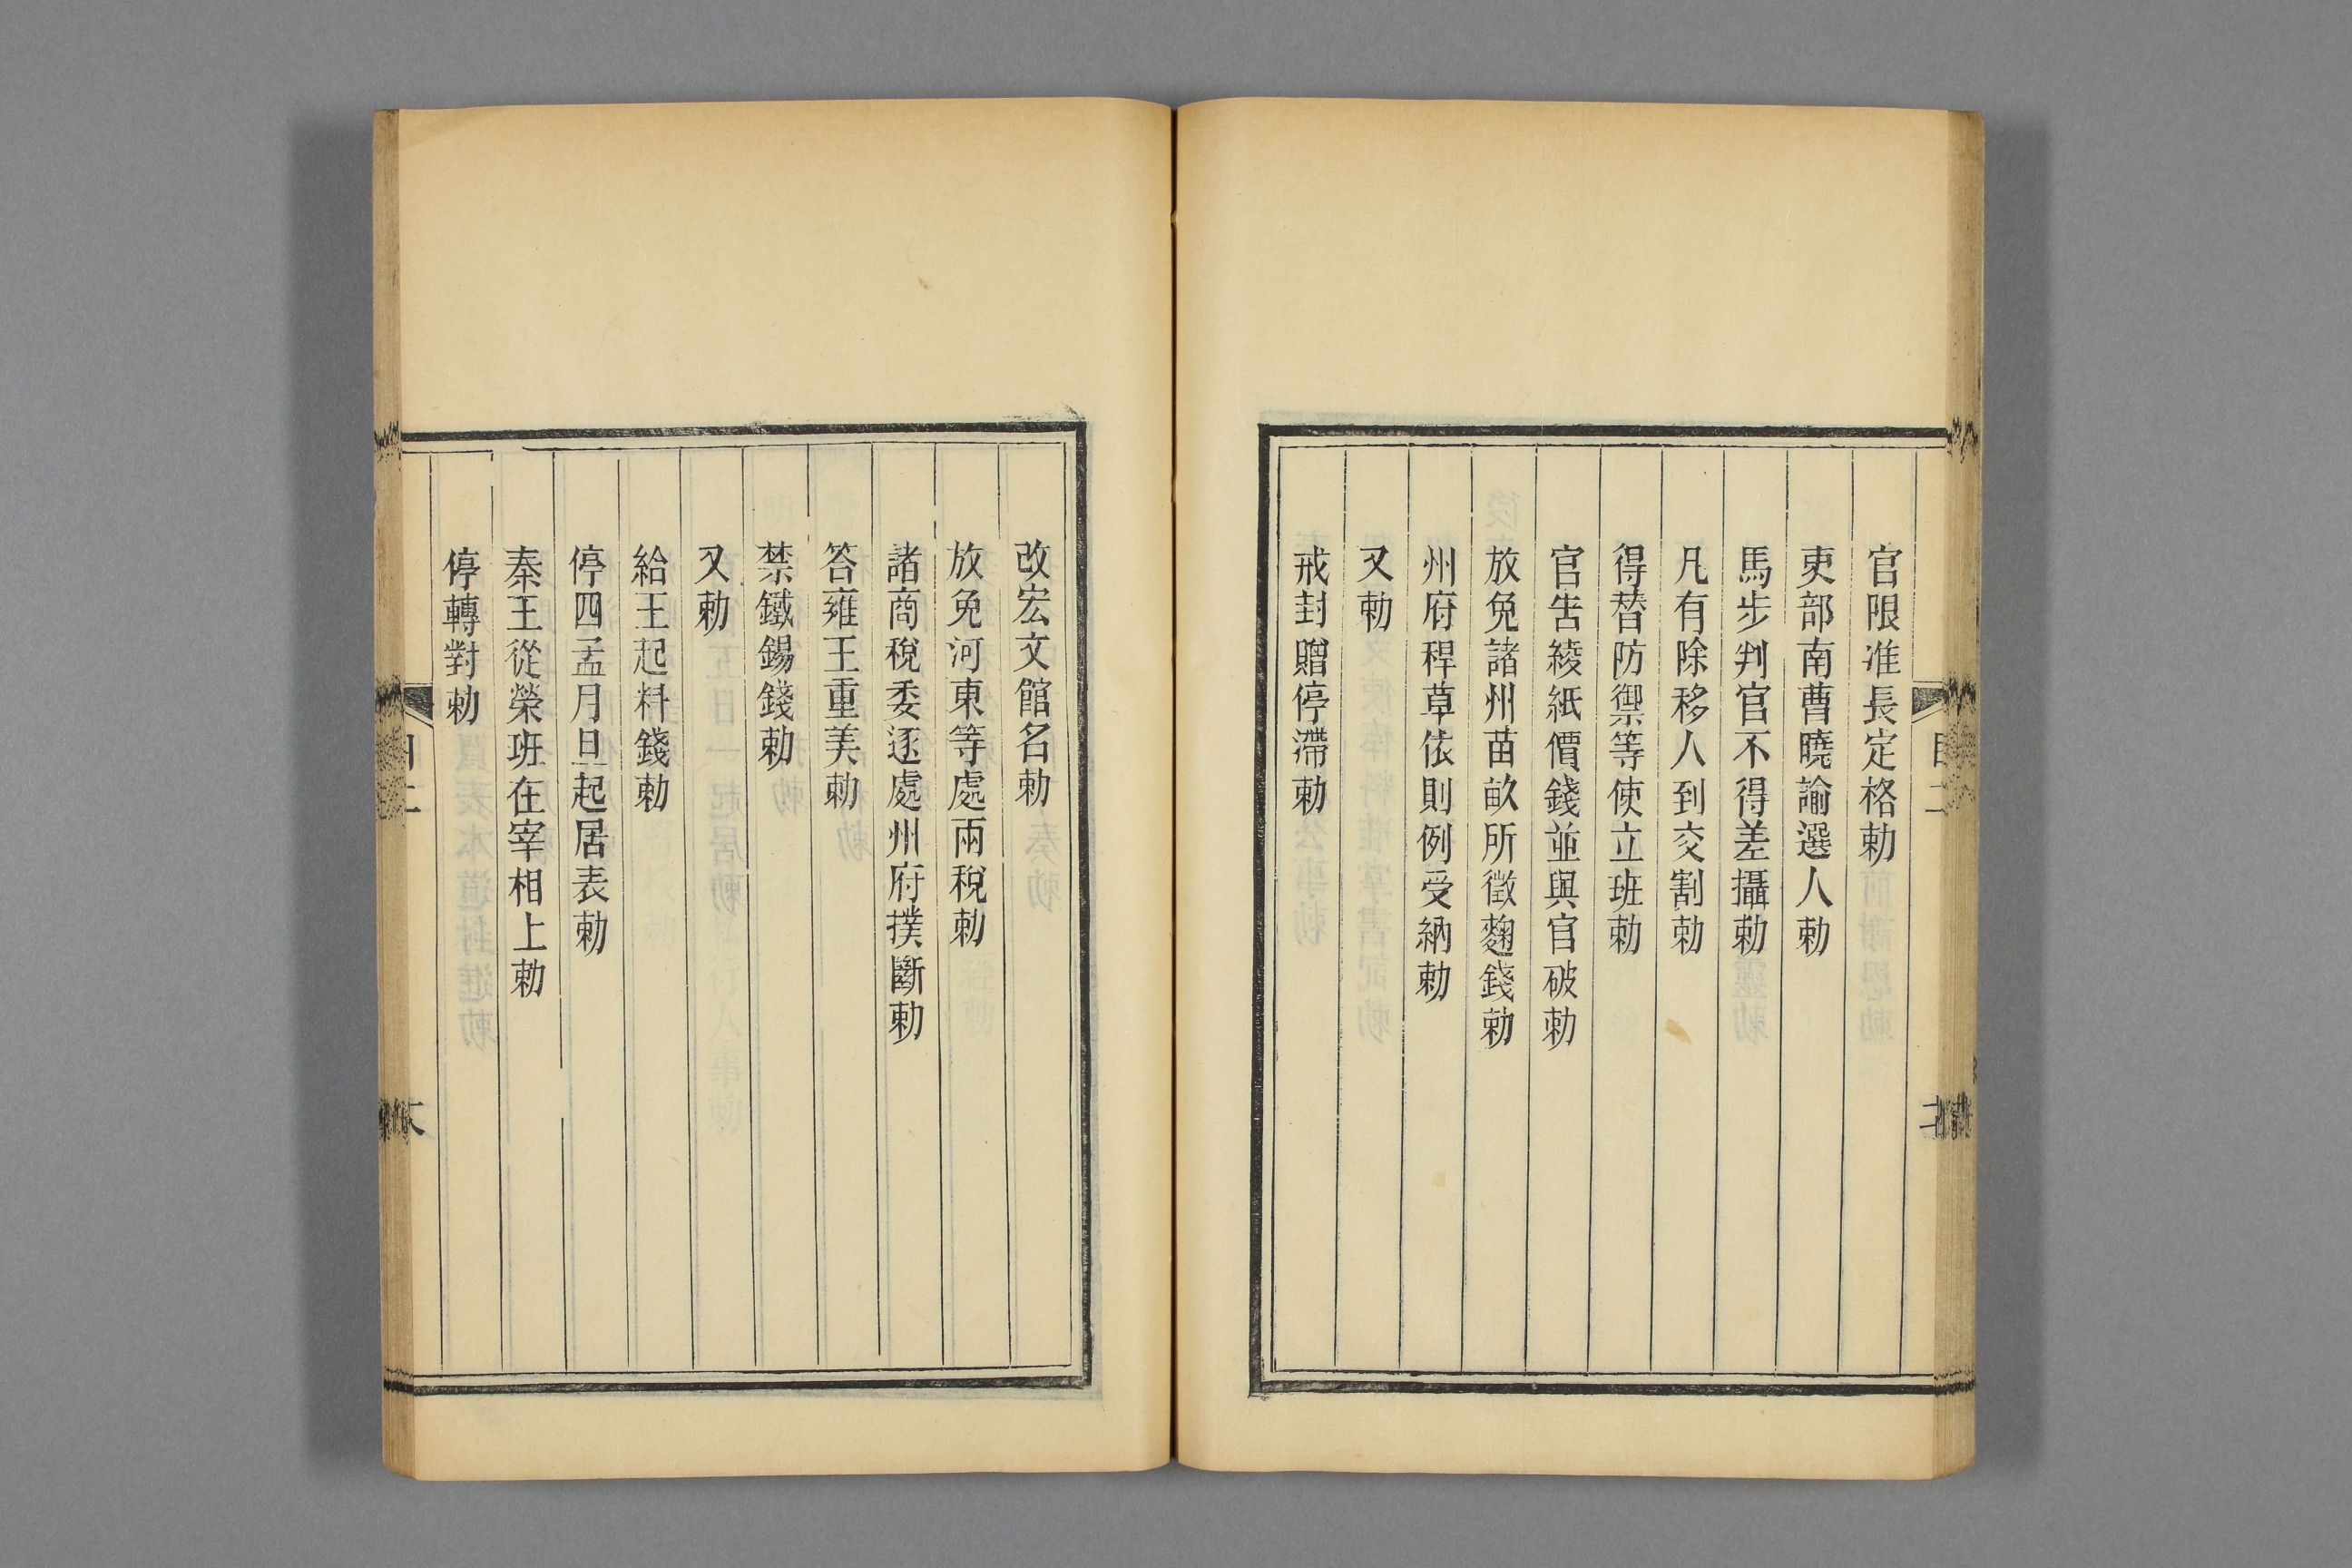 官限准長定格勅
吏部南曹曉諭選人勅
馬步判官不得差攝勅
凡有除移人到交割勅
得替防禦等使立班勅
官告綾紙價錢並與官破勅
放免諸州苗畝所徵麴錢勅
州府稈草依則例受納勅
又勅
戒封贈停滯勅
改宏文館名勅
放免河東等處兩稅勅
諸商稅委逐處州府撲斷勅
答雍王重美勅
禁鐵錫錢勅
又勅
給王起料錢勅
停四孟月旦起居表勅
秦王從榮班在宰相上勅
停轉對勅